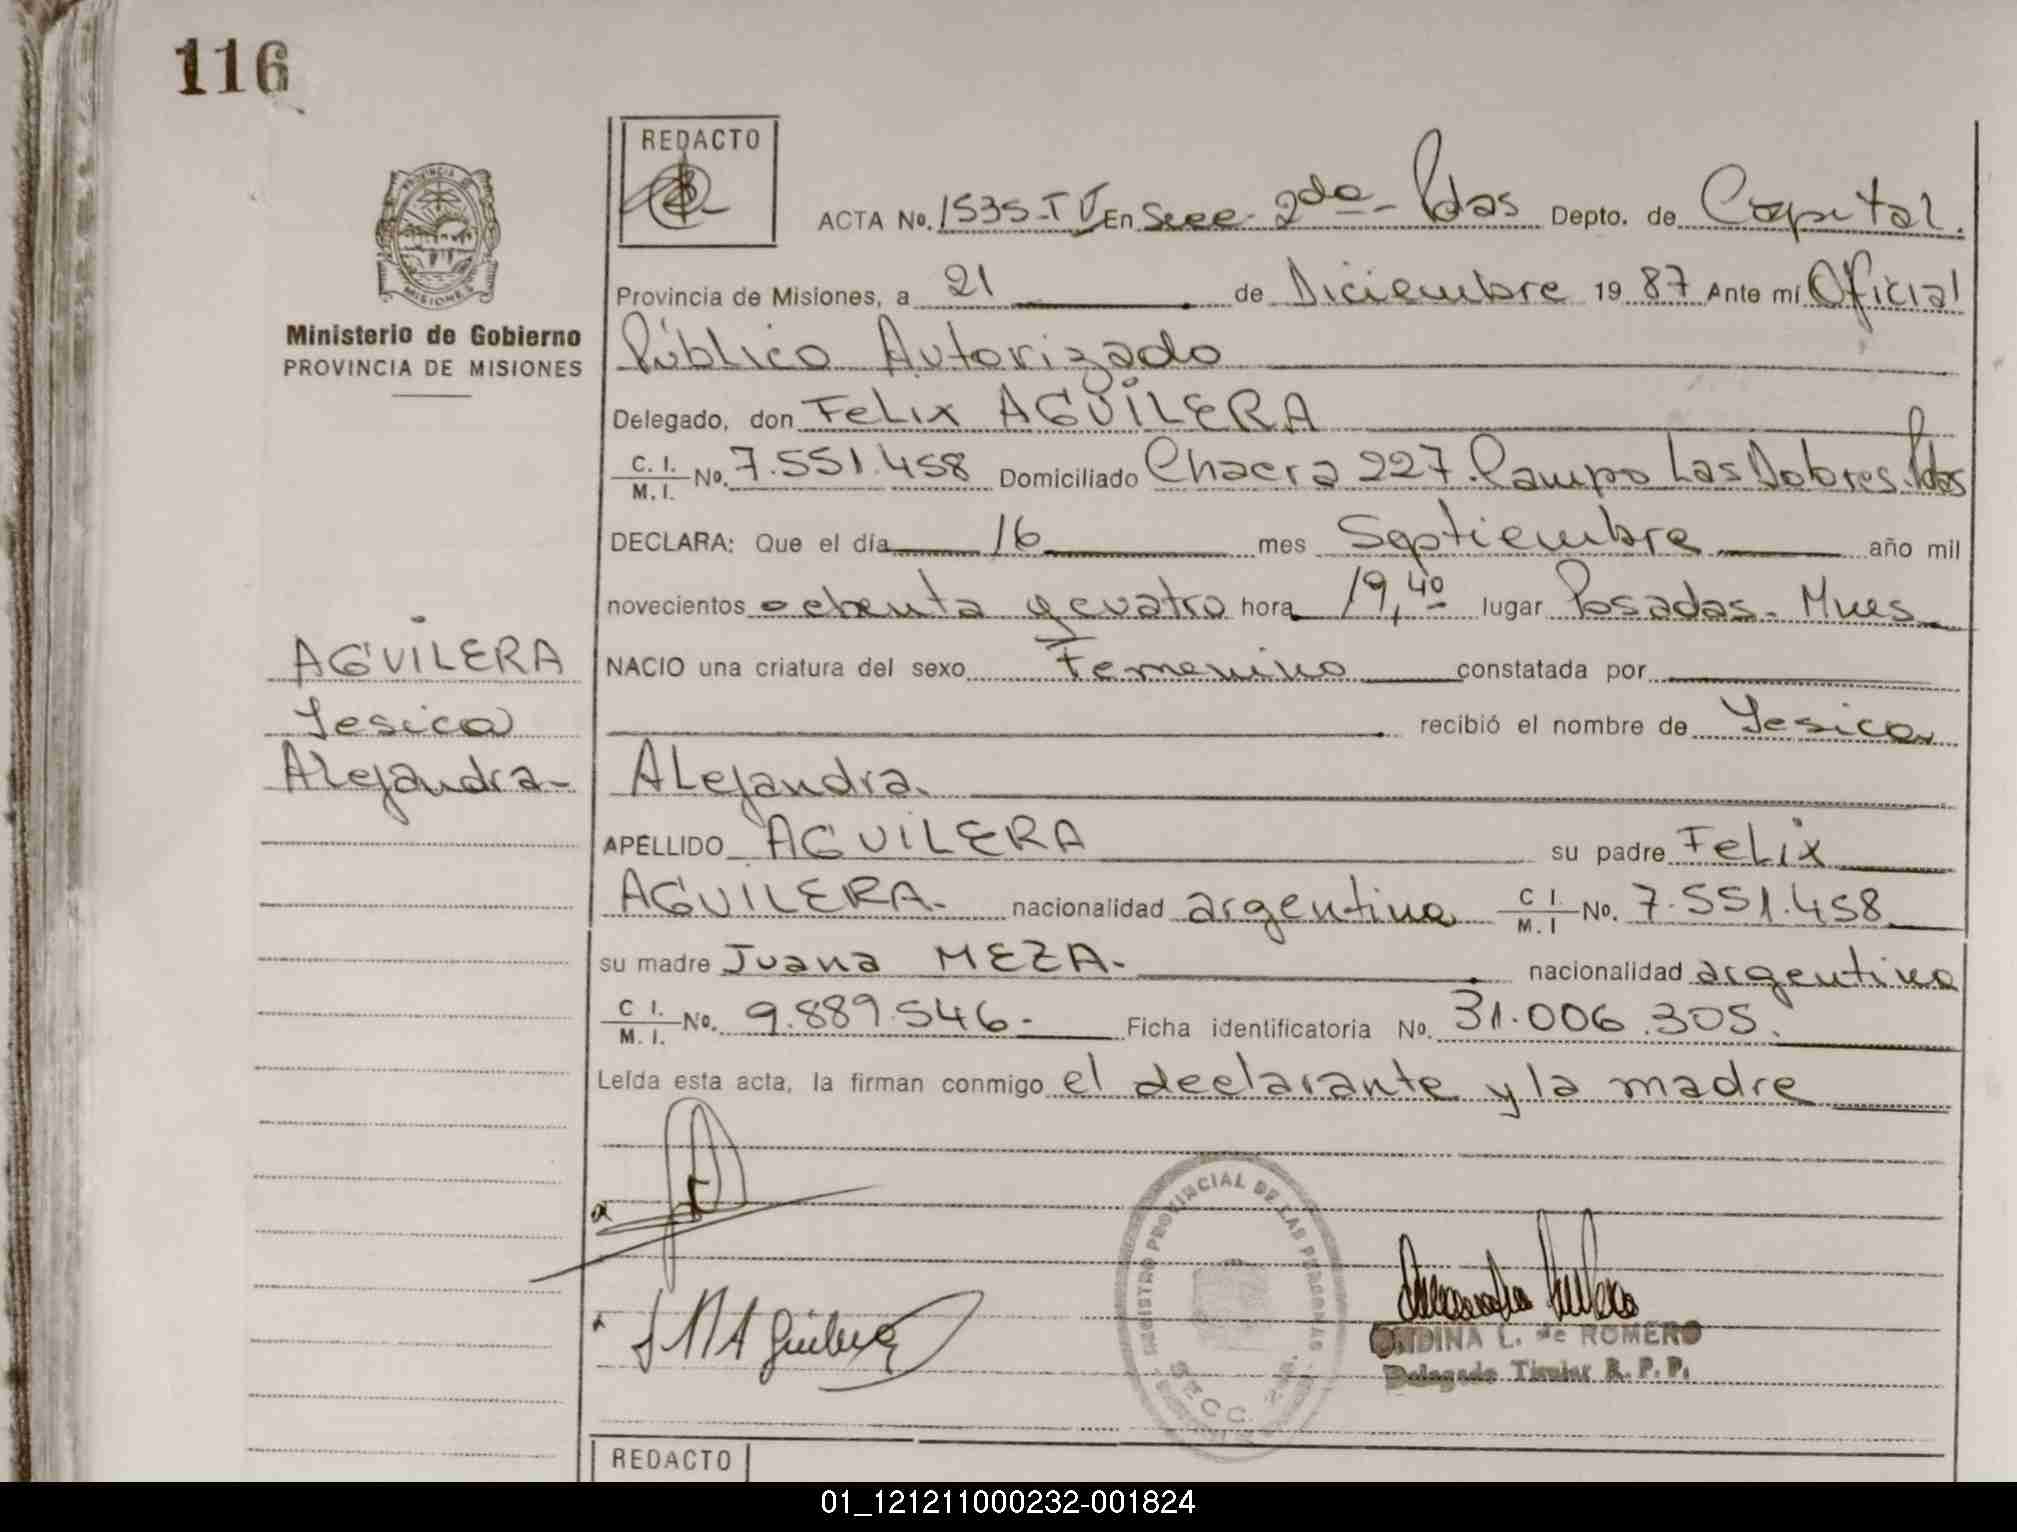 116
REDACTO
ACTA No. 1535-TV En Secc. 2da- Pdas Depto. de Capital.
Provincia de Misiones, a 21 de Diciembre 1987 Ante mí Oficial
Público Autorizado
Ministerio de Gobierno
PROVINCIA DE MISIONES
Delegado, don FeLix AGUILERA
C. I. / M. I. No. 7.551.458 Domiciliado Chacra 227. Campo Las Dolores. Pdas
DECLARA: Que el día 16 mes Septiembre año mil
novecientos ochenta y cuatro hora 19,40 lugar Posadas. Mnes
AGUILERA
Yesica
ALejandra-
NACIO una criatura del sexo Femenino constatada por
recibió el nombre de Yesica
ALejandra.
APELLIDO AGUILERA su padre FeLix
AGUILERA- nacionalidad argentina C I. / M. I No. 7.551.458
su madre Juana MEZA- nacionalidad argentina
C I. / M. I. No. 9.889.546- Ficha identificatoria No. 31.006.305.
Leída esta acta, la firman conmigo el declarante y la madre
REGISTRO PROVINCIAL DE LAS PERSONAS
SECC.
ONDINA L. de ROMERO
Delegado Titular R. P. P.
REDACTO
01_121211000232-001824